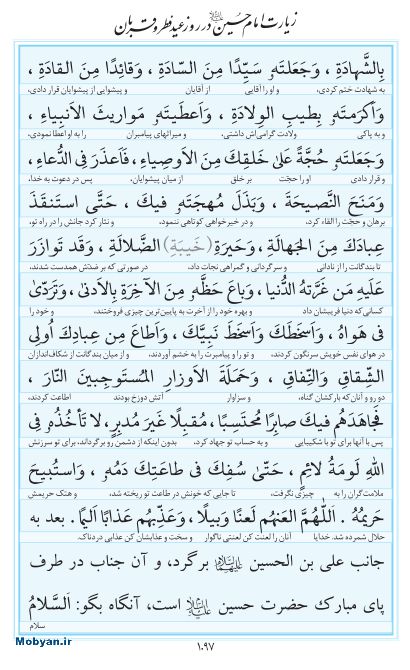 زیارت امام حسین علیه‌السلام در روز عید فطر و قربان
بِالشَّهادَةِ ، وَجَعَلتَهُ سَيِّدًا مِنَ السّادَةِ ، وَقائِدًا مِنَ القادَةِ ،
به شهادت ختم کردی، و او را آقایی از آقایان و پیشوایی از پیشوایان قرار دادی،
وَأَكرَمتَهُ بِطيبِ الوِلادَةِ ، وَأَعطَيتَهُ مَواريثَ الأَنبِياءِ ،
و به پاکی ولادت گرامی‌اش داشتی، و میراثهای پیامبران را به او اعطا نمودی،
وَجَعَلتَهُ حُجَّةً عَلىٰ خَلقِكَ مِنَ الأَوصِياءِ ، فَأَعذَرَ فِى الدُّعاءِ ،
و قرار دادی او را حجّت بر خلق از میان پیشوایان. پس در دعوت به خدا،
وَمَنَحَ النَّصيحَةَ ، وَبَذَلَ مُهجَتَهُ فيكَ ، حَتَّى استَنقَذَ
برهان و حجّت را القاء کرد. و در خیرخواهی کوتاهی ننمود. و نثار کرد جانش را در راه تو،
عِبادَكَ مِنَ الجَهالَةِ ، وَحَيرَةِ (خَيبَةِ) الضَّلالَةِ ، وَقَد تَوازَرَ
تا بندگانت را از نادانی و سرگردانی و گمراهی نجات داد. در صورتی که بر ضدّش همدست شدند،
عَلَيهِ مَن غَرَّتهُ الدُّنيا ، وَباعَ حَظَّهُ مِنَ الآخِرَةِ بِالأَدنىٰ ، وَتَرَدّىٰ
کسانی که دنیا فریبشان داد و بهره خود را از آخرت به پایین‌ترین چیزی فروختند، و خود را
فى هَواهُ ، وَأَسخَطَكَ وَأَسخَطَ نَبِيَّكَ ، وَأَطاعَ مِن عِبادِكَ أُولِى
در هوای نفس خویش سرنگون کردند، و تو را و پیامبرت را به خشم آوردند، و از میان بندگانت از شکاف‌اندازان
الشِّقاقِ وَالنِّفاقِ ، وَحَمَلَةَ الأَوزارِ المُستَوجِبينَ النّارَ ،
دو رو و آنان که بارکشان گناه، و سزاوار آتش دوزخ بودند اطاعت کردند،
فَجاهَدَهُم فيكَ صابِرًا مُحتَسِبًا ، مُقبِلًا غَيرَ مُدبِرٍ، لا تَأخُذُهُ فِى
پس با آنها برای تو با شکیبایی و به حساب تو جهاد کرد. بدون اینکه از دشمن رو برگرداند، برای تو سرزنش
اللهِ لَومَةُ لائِمٍ ، حَتّىٰ سُفِكَ فى طاعَتِكَ دَمُهُ ، وَاستُبيحَ
ملامت‌گران را به چیزی نگرفت، تا جایی که خونش در طاعت تو ریخته شد، و هتک حریمش
حَريمُهُ . اَللّٰهُمَّ العَنهُم لَعنًا وَبيلًا ، وَعَذِّبهُم عَذابًا أَليمًا. بعد به
حلال شمرده شد. خدایا آنان را لعنت کن لعنتی ناگوار و سخت و عذابشان کن عذابی دردناک.
جانب علی بن الحسین علیهماالسلام برگرد، و آن جناب در طرف
پای مبارک حضرت حسین علیه‌السلام است، آنگاه بگو: اَلسَّلامُ
سلام
۱۰۹۷
Mobyan.ir